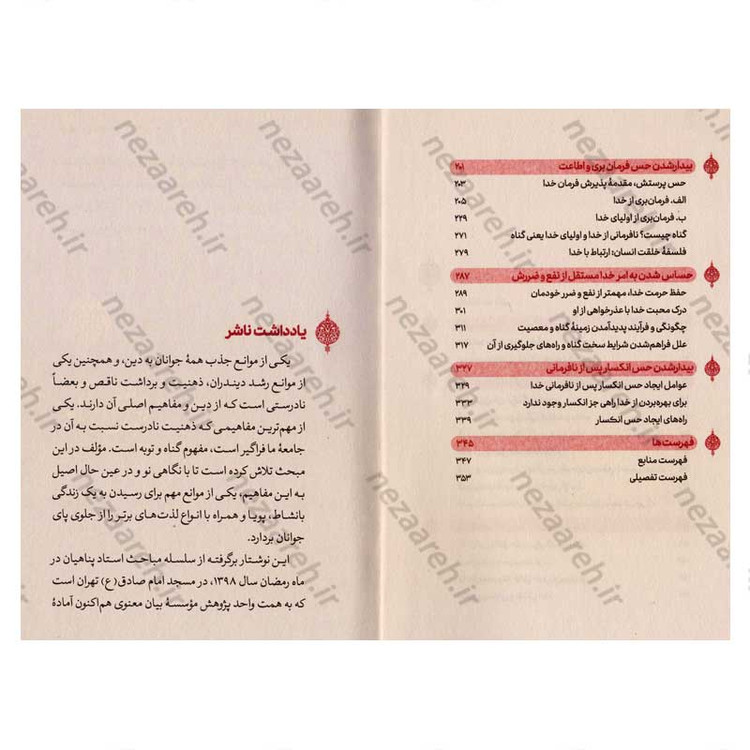 بیدار شدن حس فرمان بری و اطاعت ۲۰۱
حس پرستش، مقدمهٔ پذیرش فرمان خدا ۲۰۳
الف. فرمان‌بری از خدا ۲۰۵
ب. فرمان‌بری از اولیای خدا ۲۲۹
گناه چیست؟ نافرمانی از خدا و اولیای خدا یعنی گناه ۲۷۱
فلسفهٔ خلقت انسان: ارتباط با خدا ۲۷۹
حساس شدن به امر خدا مستقل از نفع و ضررش ۲۸۷
حفظ حرمت خدا، مهمتر از نفع و ضرر خودمان ۲۸۹
درک محبت خدا با عذرخواهی از او ۳۰۱
چگونگی و فرآیند پدیدآمدن زمینهٔ گناه و معصیت ۳۱۱
علل فراهم‌شدن شرایط سخت گناه و راه‌های جلوگیری از آن ۳۱۷
بیدار شدن حس انکسار پس از نافرمانی ۳۲۷
عوامل ایجاد حس انکسار پس از نافرمانی خدا ۳۲۹
برای بهره‌بردن از خدا راهی جز انکسار وجود ندارد ۳۳۳
راه‌های ایجاد حس انکسار ۳۳۹
فهرست‌ها ۳۴۵
فهرست منابع ۳۴۷
فهرست تفصیلی ۳۵۳
یادداشت ناشر
یکی از موانع جذب همهٔ جوانان به دین، و همچنین یکی
از موانع رشد دینداران، ذهنیت و برداشت ناقص و بعضاً
نادرستی است که از دین و مفاهیم اصلی آن دارند. یکی
از مهم‌ترین مفاهیمی که ذهنیت نادرست نسبت به آن در
جامعهٔ ما فراگیر است، مفهوم گناه و توبه است. مؤلف در این
مبحث تلاش کرده است تا با نگاهی نو و در عین حال اصیل
به این مفاهیم، یکی از موانع مهم برای رسیدن به یک زندگی
بانشاط، پویا و همراه با انواع لذت‌های برتر را از جلوی پای
جوانان بردارد.
این نوشتار برگرفته از سلسله مباحث استاد پناهیان در
ماه رمضان سال ۱۳۹۸، در مسجد امام صادق(ع) تهران است
که به همت واحد پژوهش مؤسسهٔ بیان معنوی هم‌اکنون آمادهٔ
nezaareh.ir
nezaareh.ir
nezaareh.ir
nezaareh.ir
nezaareh.ir
nezaareh.ir
nezaareh.ir
nezaareh.ir
nezaareh.ir
nezaareh.ir